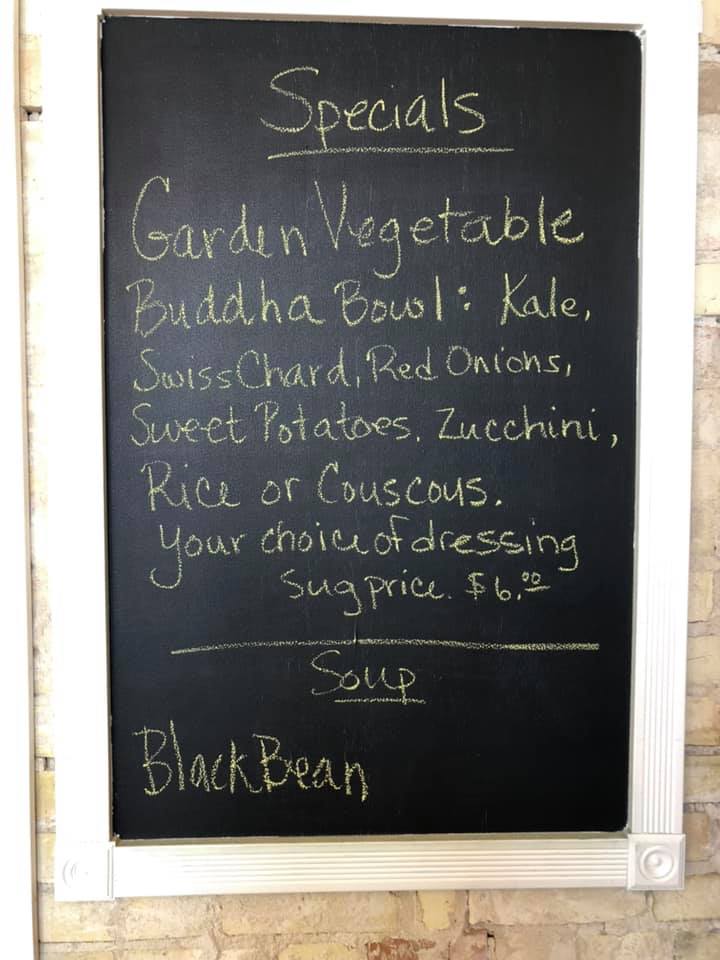 Specials
Garden Vegetable
Buddha Bowl: Kale,
Swiss Chard, Red Onions,
Sweet Potatoes, Zucchini,
Rice or Couscous.
Your choice of dressing
Sug price. $6.00
Soup
Black Bean